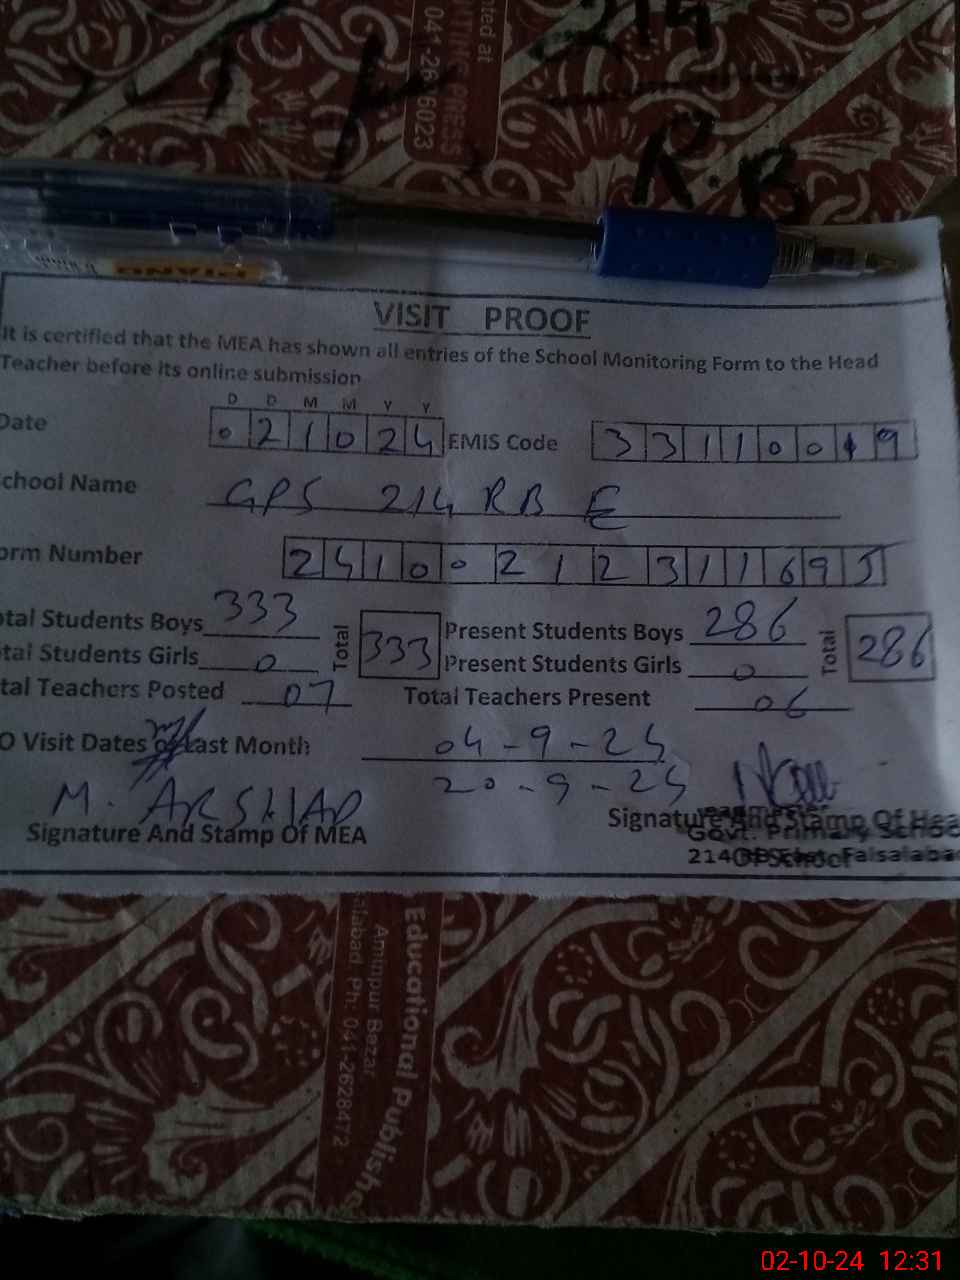 nted at
TING PRESS
041-2626023
214
R.B
PIANO
VISIT PROOF
It is certified that the MEA has shown all entries of the School Monitoring Form to the Head
Teacher before its online submission
D D M M Y Y
Date 0 2 1 0 2 4 EMIS Code 3 3 1 1 0 0 1 9
chool Name GPS 214 RB E
orm Number 2 4 1 0 0 2 1 2 3 1 1 6 9 5
otal Students Boys 333 Total 333 Present Students Boys 286 Total 286
tal Students Girls 0 Present Students Girls 0
tal Teachers Posted 07 Total Teachers Present 06
O Visit Dates of Last Month 04-9-24
20-9-24
M. ARSHAD
Signature And Stamp Of MEA
Signature And Stamp Of Hea
Govt. Primary School
Of School
214 RB East, Faisalabad
Educational Publishe
Aminpur Bazar
alabad Ph: 041-2628472
02-10-24 12:31